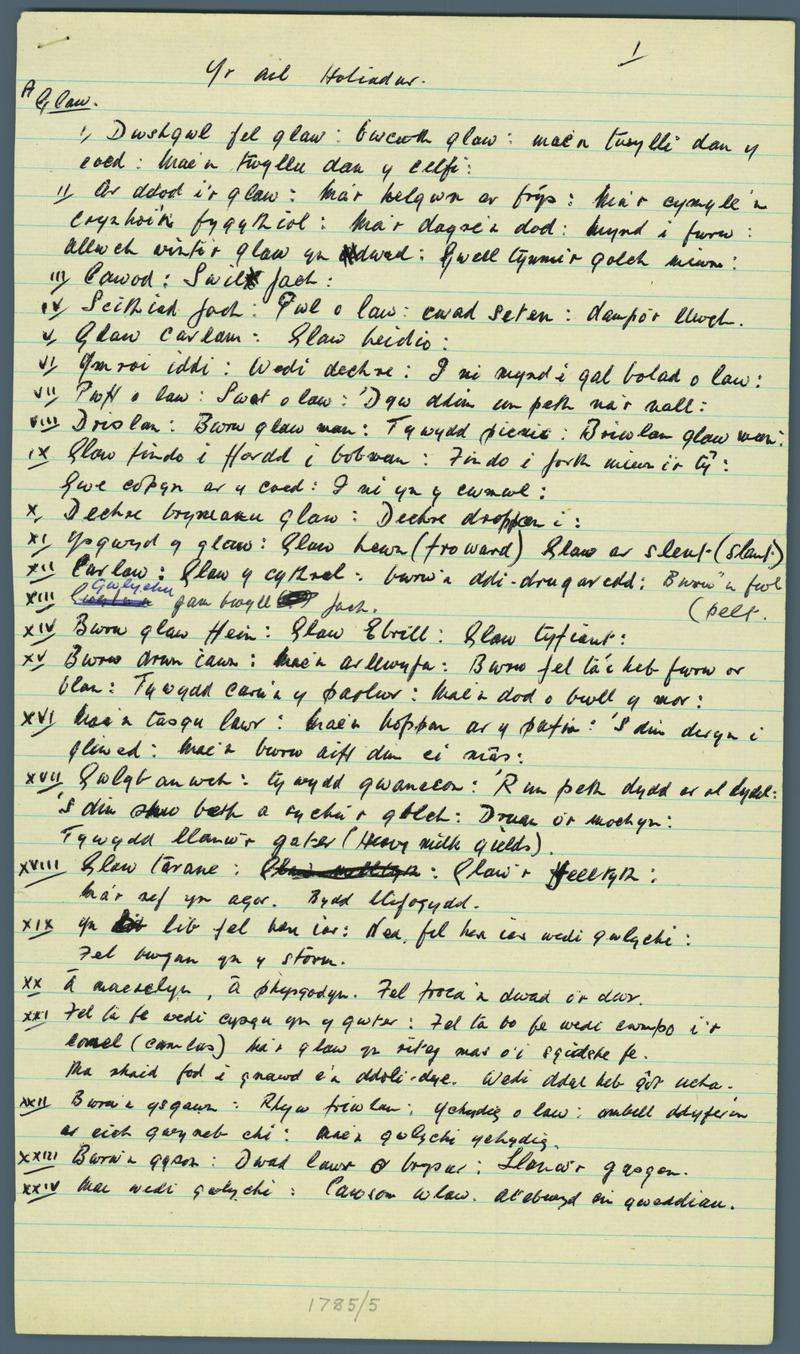 1
Yr ail Holiadur.
A Glaw.
i, Dwshgwl fel glaw: bwcwth glaw: mae'n twylli dan y
coed: Mae'n twyllu dan y celfi:
ii Ar ddod i'r glaw: Ma'r helgwn ar : Ma'r cymyle'n
crynhoi'n fygythiol: Ma'r dagre'n dod: Mynd i fwrw:
Allwch winto'r glaw yn dwad: Gwell tynnu'r golch miwn:
iii Cawod: Swil fach:
iv Scithiad fach: Pwl o law: cwad seten: dampo'r llwch.
v Glaw carlam: Glaw heidio:
vi Ymroi iddi: Wedi dechre: I ni mynd i gal bolad o law:
vii Pwff o law: Swat o law: 'Dyw ddim un peth na'r nall:
viii Drislan: Bwrw glaw man: Tywydd picnic: Briwlan glaw man:
ix Glaw findo i ffordd i bobman: Findo i forth miwn i'r tŷ:
Gwe copyn ar y coed: I ni yn y cwmwl:
x, Dechre brymanu glaw: Dechre droppan i:
xi Ysgwyd y glaw: Glaw hewn (froward) Glaw ar slent (slant)
xii Carlaw: Glaw y cythrel: bwrw'n ddi-drugaredd: Bwrw'n ffwl
(pelt.
xiii Gwlychu gan bwyll fach.
xiv Bwrw glaw ffein: Glaw Ebrill: Glaw tyfiant:
xv Bwrw drwn iawn: Mae'n arllwyfn: Bwrw fel ta'i heb fwrw or
blan: Tywydd caru'n y parlwr: Mae'n dod o bwll y mor:
xvi Mae'n tasgu lawr: Mae'n hoppan ar y patin: 'S dim deryn i
gliwed: Mae'n bwrw aift dim ei mâs:
xvii Gwlyb anwch: tywydd gwanecon: 'R un peth dydd ar ol dydd:
'S dim beth a sychu'r golch: Druan o'r mochyn:
Tywydd llanw'r gater (Heavy milk yields).
xviii Glaw tarane: : Glaw'r ffelltyth:
Ma'r nef yn agor. Bydd llifogydd.
xix Yn lib fel hen iar: Nea, fel hen iar wedi gwlychi:
Fel bwgan yn y storm.
xx A maeselyn, A physgodyn. Fel troca'n dwad o'r dwr.
xxi Fel ta fe wedi cysgu yn y gwter: Fel ta bo fe wedi cwmpo i'r
canel (camlas) Ma'r glaw yn riteg mas o'i sgidshe fe.
Ma rhaid fod i gnawd e'n ddoli-dye. Wedi ddal heb got ucha.
xxii Bwrw'n ysgawn: Rhyw friwlan: ychydig o law: ambell ddyferin
ar eich gwyneb chi: Mae'n gwlychi ychydig.
xxiii Bwrw'n gyson: Dwad lawr o brysur: Llanw'r gasgen.
xxiv Mae wedi gwlychi: Cawsom wlaw. Atebwyd ein gweddiau.
1785/5